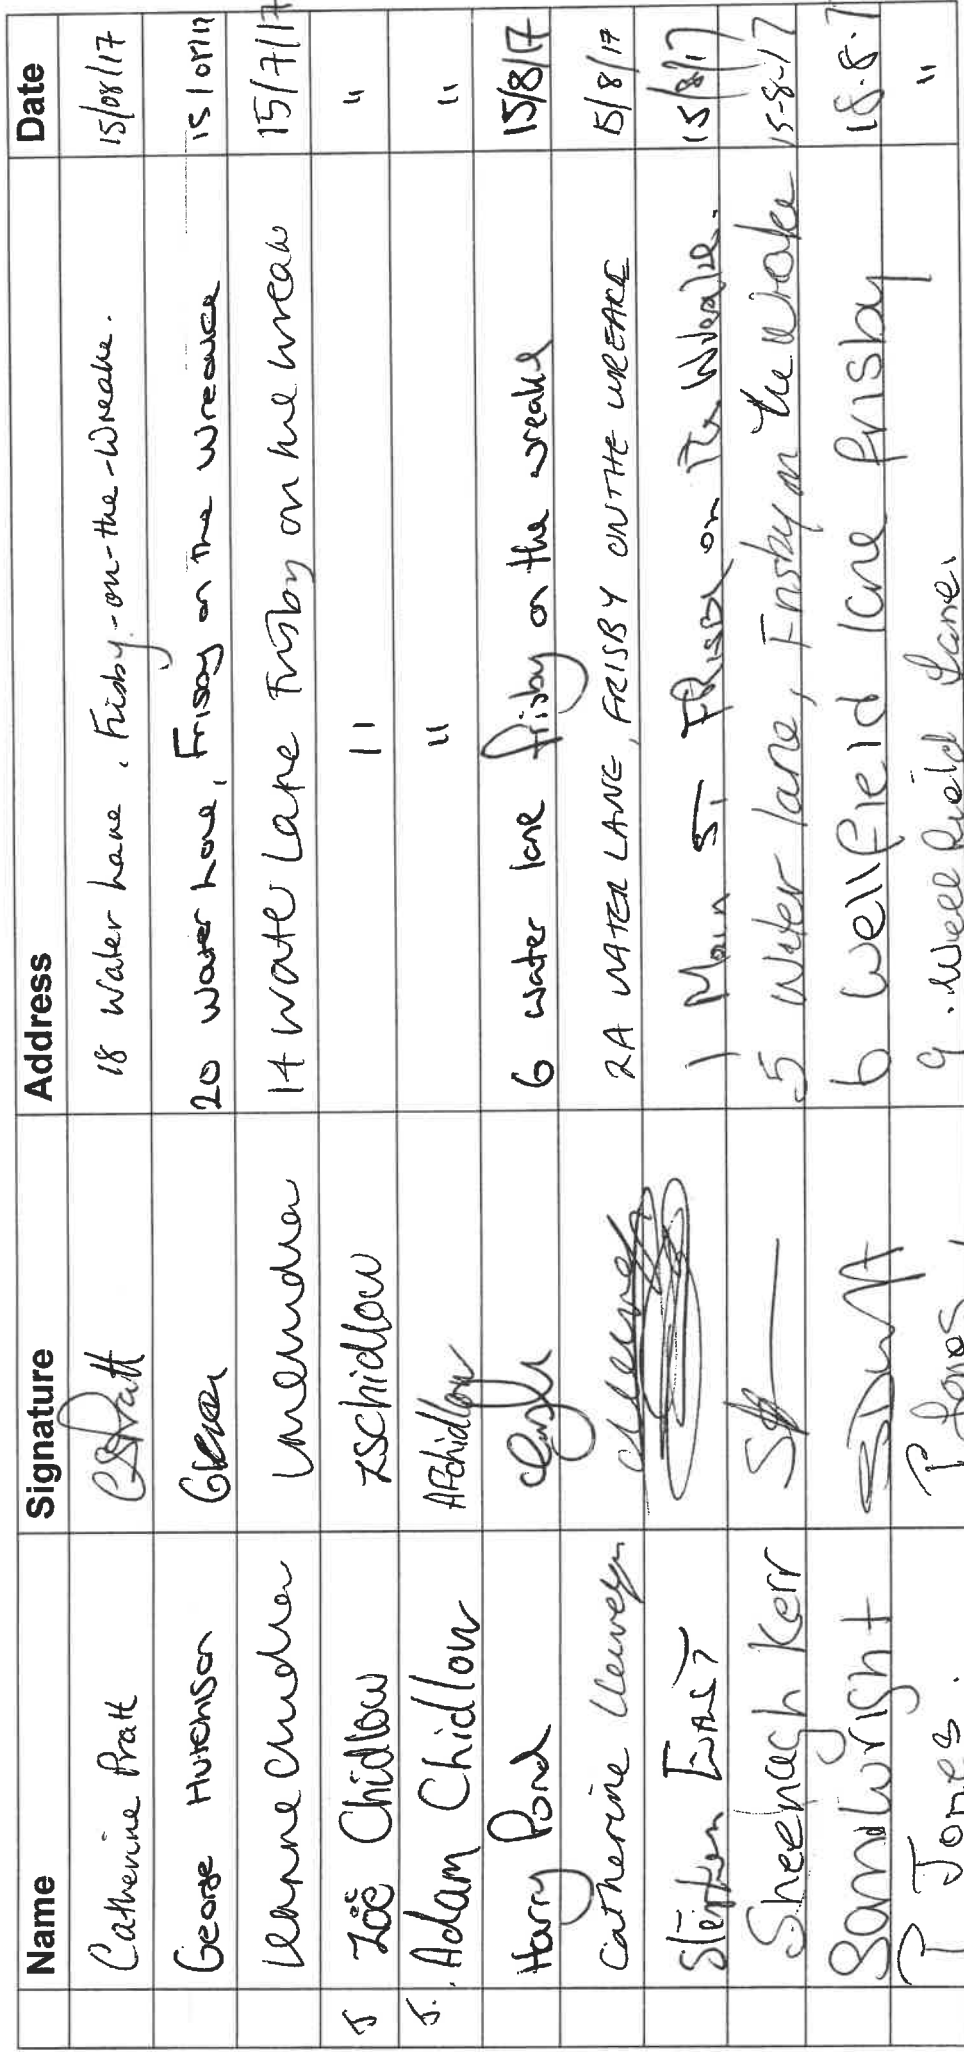 Name Signature Address Date
Catherine Pratt CSPratt 18 Water Lane, Frisby-on-the-Wreake. 15/08/17
George Hutchison 20 Water Lane, Frisby on the Wreake 15/07/17
Leanne 14 Water Lane Frisby on the wreak 15/7/17
5 Zoë Chidlow ZSChidlow " "
5. Adam Chidlow AFChidlow " "
Harry Pond 6 water lane frisby on the wreake 15/8/17
Catherine 2A WATER LANE, FRISBY ON THE WREAKE 15/8/17
Stephen 1 Main St FRISBY on The Wreake. 15/8/17
Sheenagh Kerr 5 Water lane, Frisby on the wreake 15-8-17
Sam Wright 6 Wellfield lane frisby 18.8.17
P Jones. P Jones 9. Wellfield Lane. "